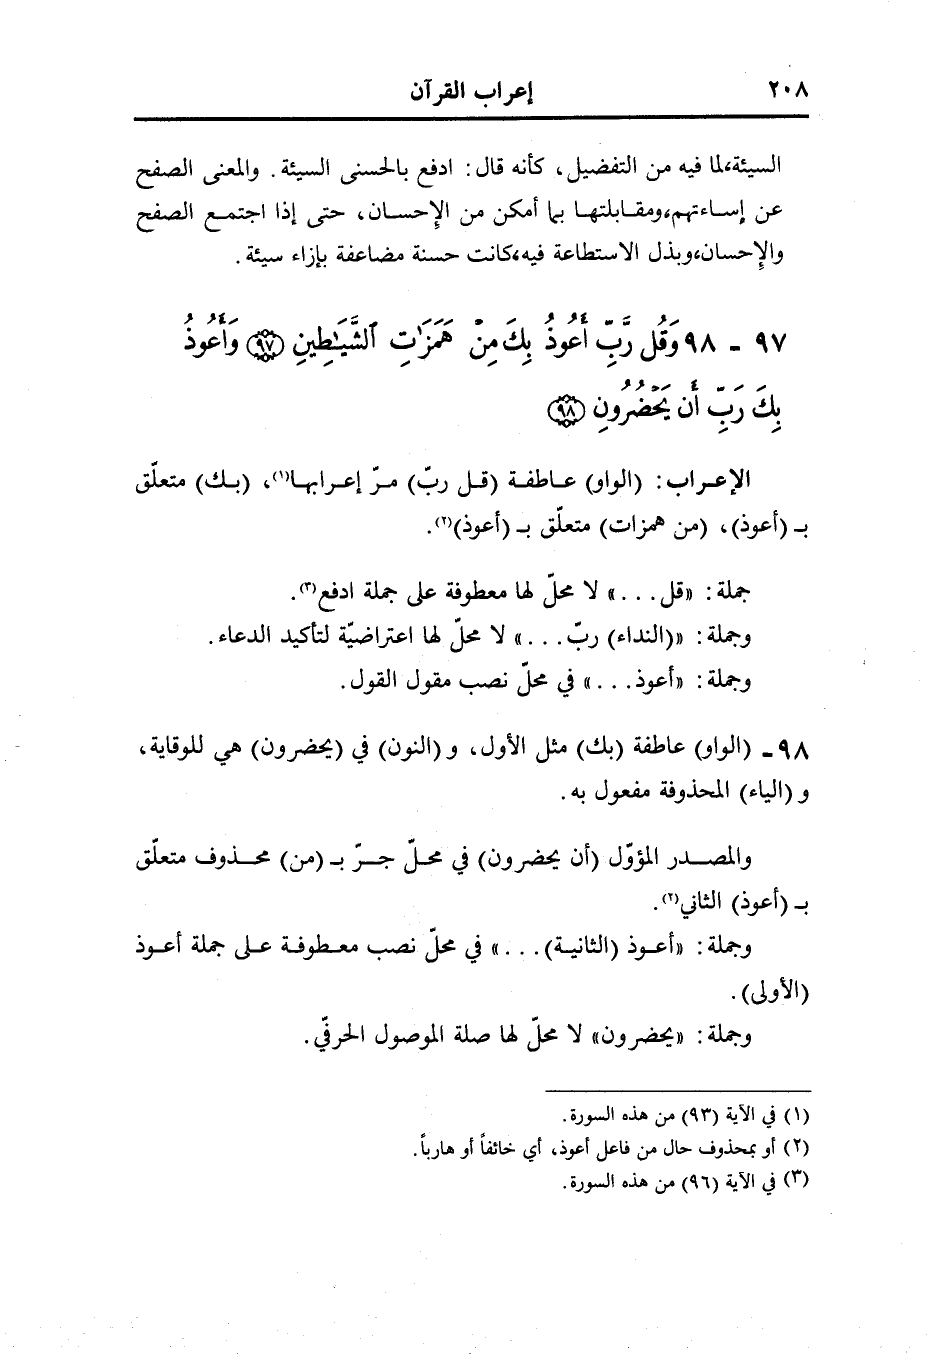 ٢٠٨
إعراب القرآن
السيئة،لما فيه من التفضيل، كأنه قال: ادفع بالحسنى السيئة. والمعنى الصفح
عن إساءتهم،ومقابلتها بما أمكن من الإحسان، حتى إذا اجتمع الصفح
والإحسان،وبذل الاستطاعة فيه،كانت حسنة مضاعفة بإزاء سيئة.
٩٧ - ٩٨ وَقُل رَّبِّ أَعُوذُ بِكَ مِنْ هَمَزَٰتِ ٱلشَّيَـٰطِينِ (٩٧) وَأَعُوذُ
بِكَ رَبِّ أَن يَحْضُرُونِ (٩٨)
الإعراب: (الواو) عاطفة (قل ربّ) مرّ إعرابها(١)، (بك) متعلّق
بـ (أعوذ)، (من همزات) متعلّق بـ (أعوذ)(٢).
جملة: «قل...» لا محلّ لها معطوفة على جملة ادفع(٣).
وجملة: «(النداء) ربّ...» لا محلّ لها اعتراضيّة لتأكيد الدعاء.
وجملة: «أعوذ...» في محلّ نصب مقول القول.
٩٨ - (الواو) عاطفة (بك) مثل الأول، و (النون) في (يحضرون) هي للوقاية،
و (الياء) المحذوفة مفعول به.
والمصدر المؤوّل (أن يحضرون) في محلّ جرّ بـ (من) محذوف متعلّق
بـ (أعوذ) الثاني(٢).
وجملة: «أعوذ (الثانية)...» في محلّ نصب معطوفة على جملة أعوذ
(الأولى).
وجملة: «يحضرون» لا محلّ لها صلة الموصول الحرفيّ.
(١) في الآية (٩٣) من هذه السورة.
(٢) أو بمحذوف حال من فاعل أعوذ، أي خائفاً أو هارباً.
(٣) في الآية (٩٦) من هذه السورة.